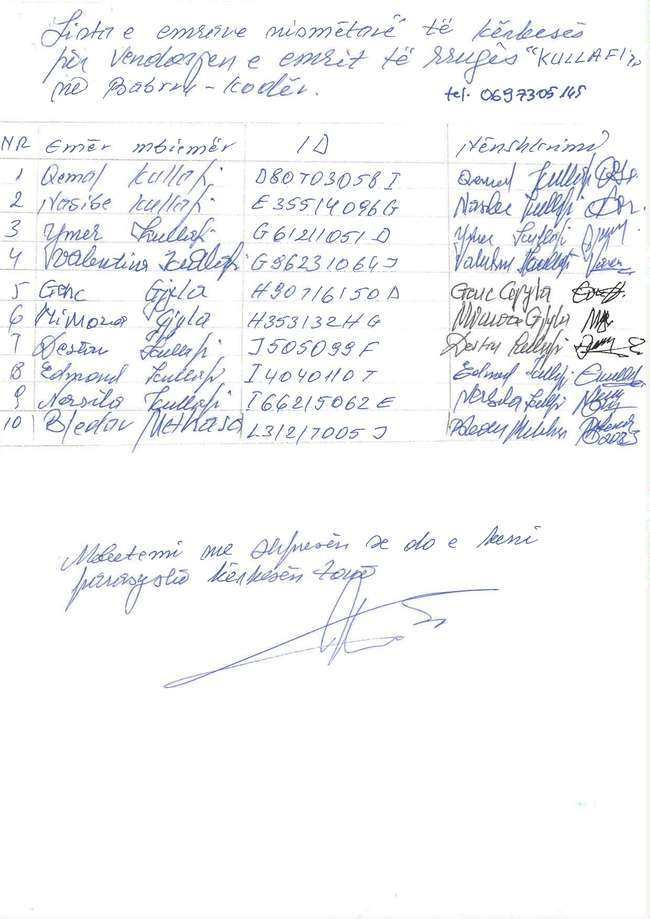 Lista e emrave nismëtarë të kërkesës
për vendosjen e emrit të rrugës "KULLAFI"
në Babrru - Kodër. tel. 0697305145
NR Emër mbiemër ID Nënshkrimi
1 Qemal Kullafi D80703058I Qemal Kullafi
2 Nasibe Kullafi E35514096G Nasibe Kullafi
3 Ymer Kullafi G61211051D Ymer Kullafi
4 Valentina Kullafi G96231064J Valentina Kullafi
5 Genc Gjyla H90716150D Genc Gjyla
6 Mimoza Gjyla H353132HG Mimoza Gjyla
7 Destan Kullafi J505099F Destan Kullafi
8 Edmond Kullafi I4040110T Edmond Kullafi
9 Narsila Kullafi I66215062E Narsila Kullafi
10 Bledar Methasa L31217005J Bledar
Mbetemi me shpresën se do e keni
parasysh kërkesën tonë